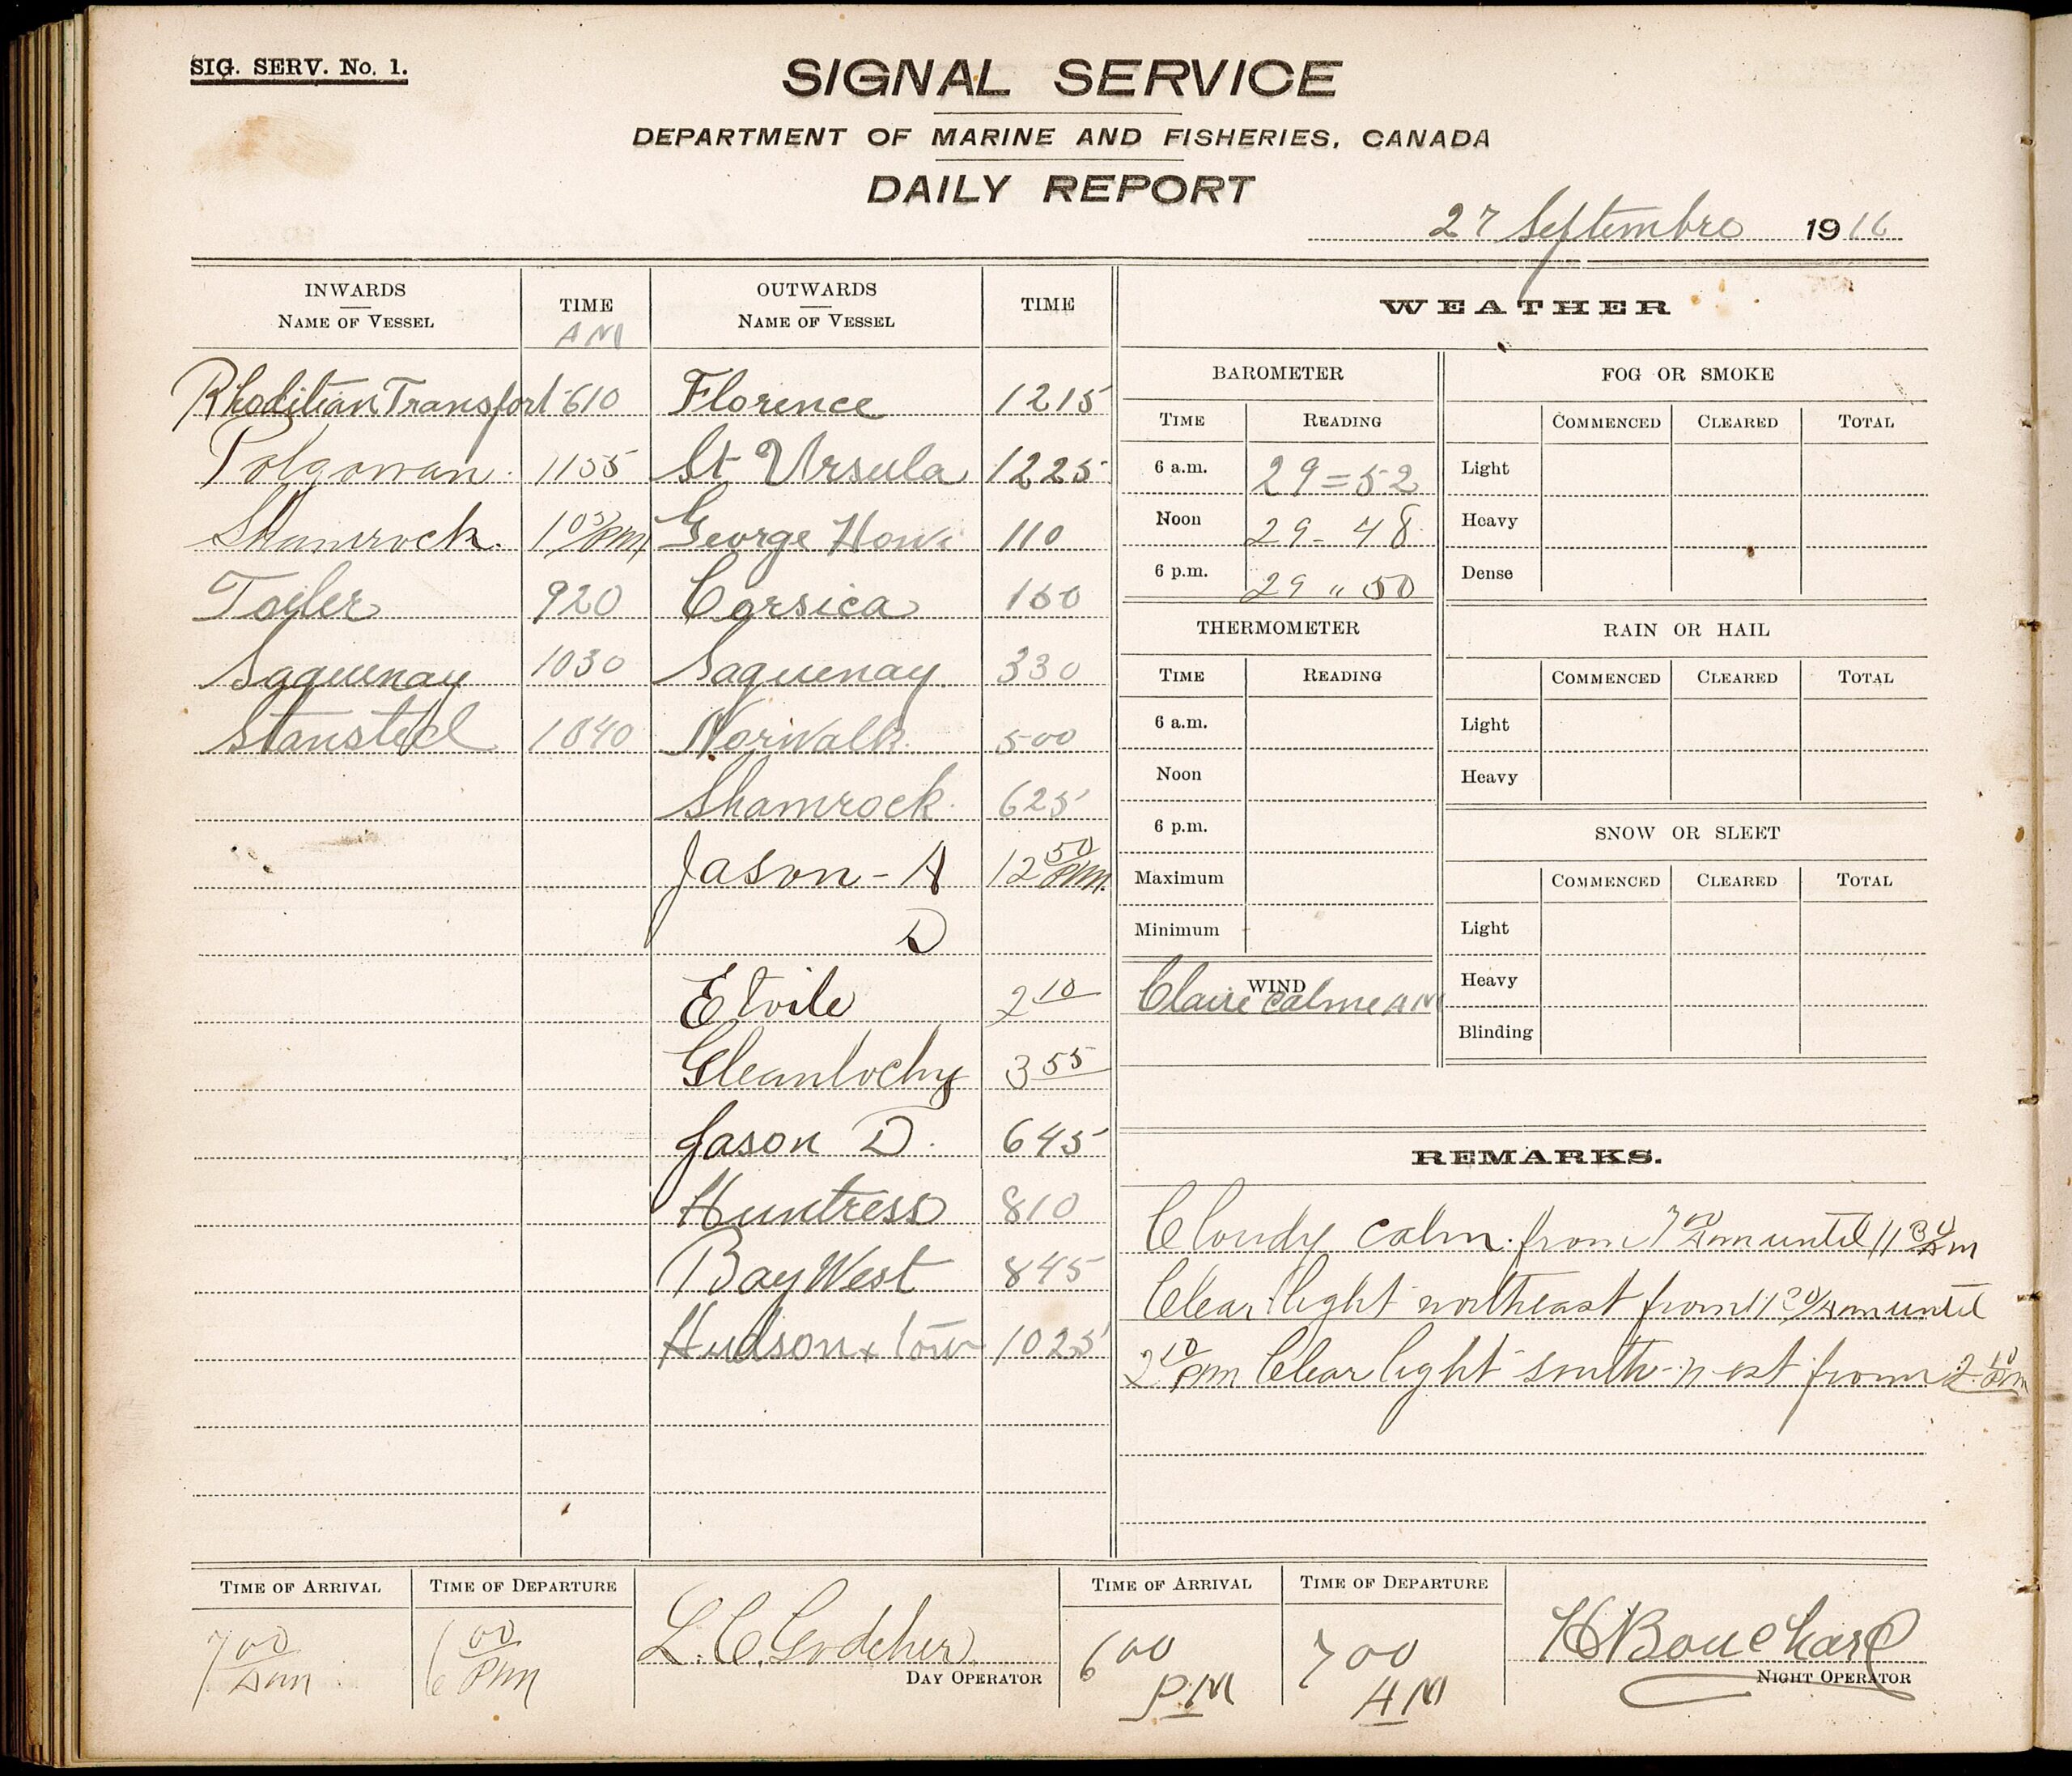 SIG. SERV. No. 1.
SIGNAL SERVICE
DEPARTMENT OF MARINE AND FISHERIES, CANADA
DAILY REPORT
27 Septembre 1916
INWARDS
NAME OF VESSEL
TIME
AM
OUTWARDS
NAME OF VESSEL
TIME
Rhoditian Transport 610 Florence 1215
Polgowan 1155 St Ursula 1225
Shamrock. PM George 110
Toiler 920 Corsica 150
Saguenay 1030 Saguenay 330
Stansted 1040 Norwalk 500
Shamrock 625
Jason - A 12 50 PM
D
Etoile 2 10
Gleanlochy 3 55
Jason D. 645
Huntress 810
Bay West 845
Hudson 1025
WEATHER
BAROMETER
TIME READING
6 a.m. 29=52
Noon 29-48
6 p.m. 29 " 50
THERMOMETER
TIME READING
6 a.m.
Noon
6 p.m.
Maximum
Minimum
WIND
Claire Calme AM
FOG OR SMOKE
COMMENCED CLEARED TOTAL
Light
Heavy
Dense
RAIN OR HAIL
COMMENCED CLEARED TOTAL
Light
Heavy
SNOW OR SLEET
COMMENCED CLEARED TOTAL
Light
Heavy
Blinding
REMARKS.
Cloudy calm from 7 00 am until 11 30 am
Clear light northeast from 11 30 am until
2 10 PM Clear light south-west from 2 10 PM
TIME OF ARRIVAL
7 00 AM
TIME OF DEPARTURE
6 00 PM
L. C.
DAY OPERATOR
TIME OF ARRIVAL
6 00 PM
TIME OF DEPARTURE
7 00 AM
H Bouchard
NIGHT OPERATOR